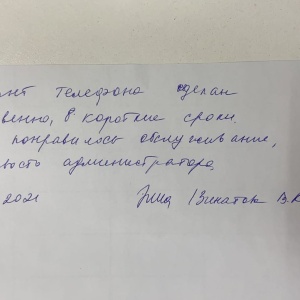 онт телефона сделан
венно, в короткие сроки.
понравилось обслуживание,
вость администратора.
2021